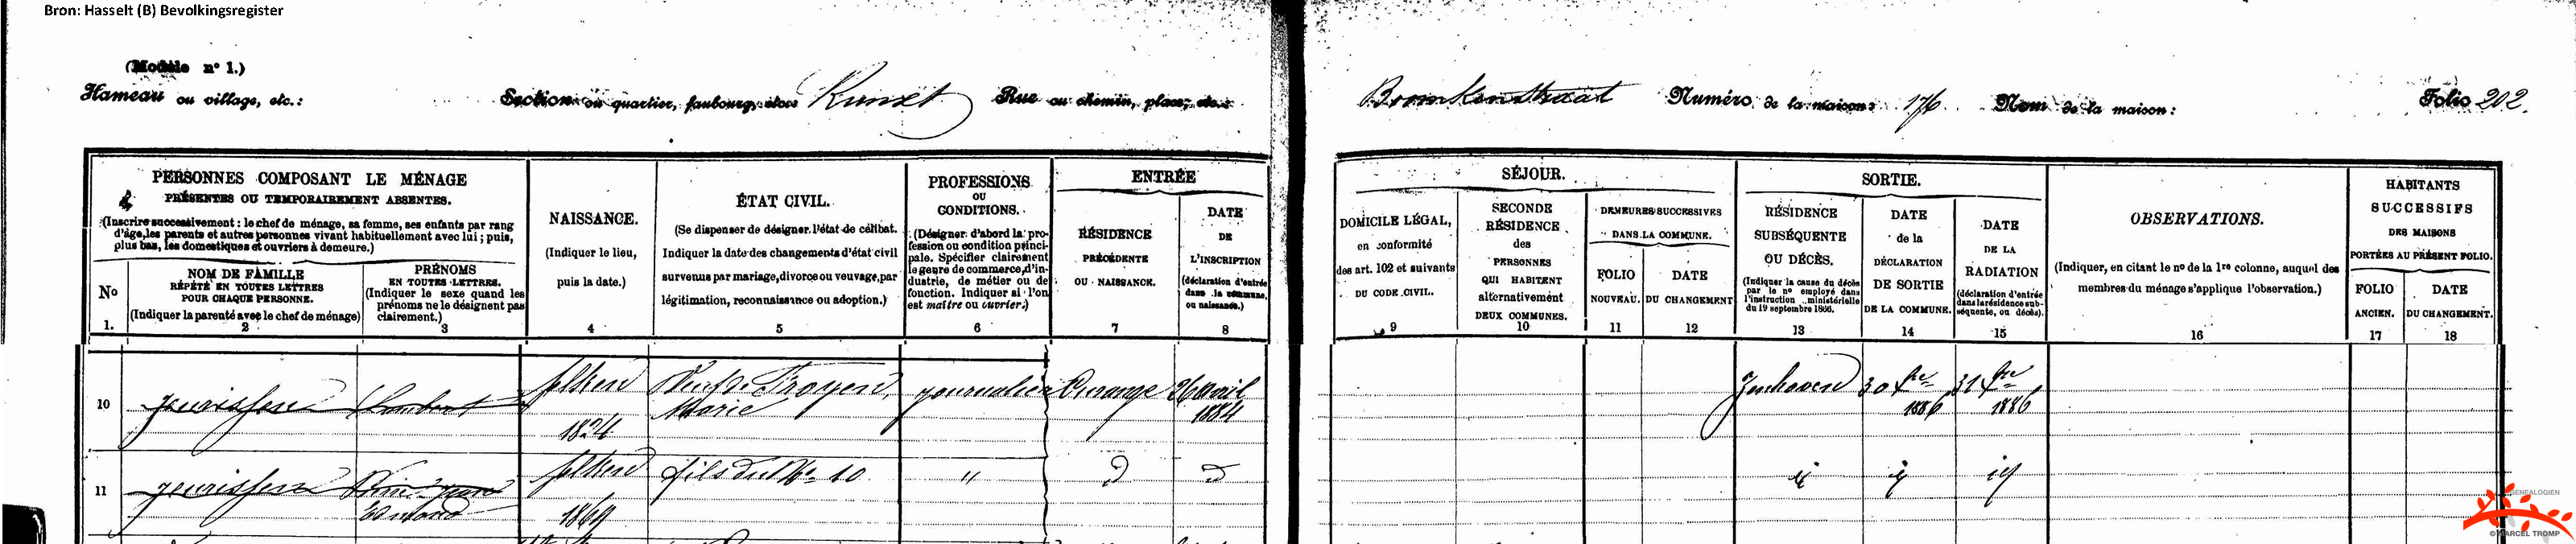 Bron: Hasselt (B) Bevolkingsregister
(Modèle nº 1.)
Hameau ou village, etc.: Section ou quartier, faubourg, etc.: Runxt Rue ou chemin, place, etc.: Numéro de la maison: 176 Nom de la maison: Folio 202.
PERSONNES COMPOSANT LE MÉNAGE
PRÉSENTES OU TEMPORAIREMENT ABSENTES.
(Inscrire successivement : le chef de ménage, sa femme, ses enfants par rang
d'âge, les parents et autres personnes vivant habituellement avec lui ; puis,
plus bas, les domestiques et ouvriers à demeure.)
No
1.
NOM DE FAMILLE
RÉPÉTÉ EN TOUTES LETTRES
POUR CHAQUE PERSONNE.
(Indiquer la parenté avec le chef de ménage)
2
PRÉNOMS
EN TOUTES LETTRES.
(Indiquer le sexe quand les
prénoms ne le désignent pas
clairement.)
3
NAISSANCE.
(Indiquer le lieu,
puis la date.)
4
ÉTAT CIVIL.
(Se dispenser de désigner l'état de célibat.
Indiquer la date des changements d'état civil
survenus par mariage, divorce ou veuvage, par
légitimation, reconnaissance ou adoption.)
5
PROFESSIONS
OU
CONDITIONS.
(Désigner d'abord la pro-
fession ou condition princi-
pale. Spécifier clairement
le genre de commerce, d'in-
dustrie, de métier ou de
fonction. Indiquer si l'on
est maître ou ouvrier.)
6
ENTRÉE
RÉSIDENCE
PRÉCÉDENTE
OU NAISSANCE.
7
DATE
DE
L'INSCRIPTION
(déclaration d'entrée
dans la commune,
ou naissance.)
8
SÉJOUR.
DOMICILE LÉGAL,
en conformité
des art. 102 et suivants
DU CODE CIVIL.
9
SECONDE
RÉSIDENCE
des
PERSONNES
QUI HABITENT
alternativement
DEUX COMMUNES.
10
DEMEURES SUCCESSIVES
DANS LA COMMUNE.
FOLIO
NOUVEAU.
11
DATE
DU CHANGEMENT
12
SORTIE.
RÉSIDENCE
SUBSÉQUENTE
OU DÉCÈS.
(Indiquer la cause du décès
par le nº employé dans
l'instruction ministérielle
du 19 septembre 1866.
13
DATE
de la
DÉCLARATION
DE SORTIE
DE LA COMMUNE.
14
DATE
DE LA
RADIATION
(déclaration d'entrée
dans la résidence sub-
séquente, ou décès).
15
OBSERVATIONS.
(Indiquer, en citant le nº de la 1re colonne, auquel des
membres du ménage s'applique l'observation.)
16
HABITANTS
SUCCESSIFS
DES MAISONS
PORTÉES AU PRÉSENT FOLIO.
FOLIO
ANCIEN.
17
DATE
DU CHANGEMENT.
18
10 Jeurissen Lambert 1824
Troyen, Marie
journalier Curange 26 avril 1884
30 1886 31 1886
11 Jeurissen 1869
fils du Nº 10 "
GENEALOGIEN
© MARCEL TROMP